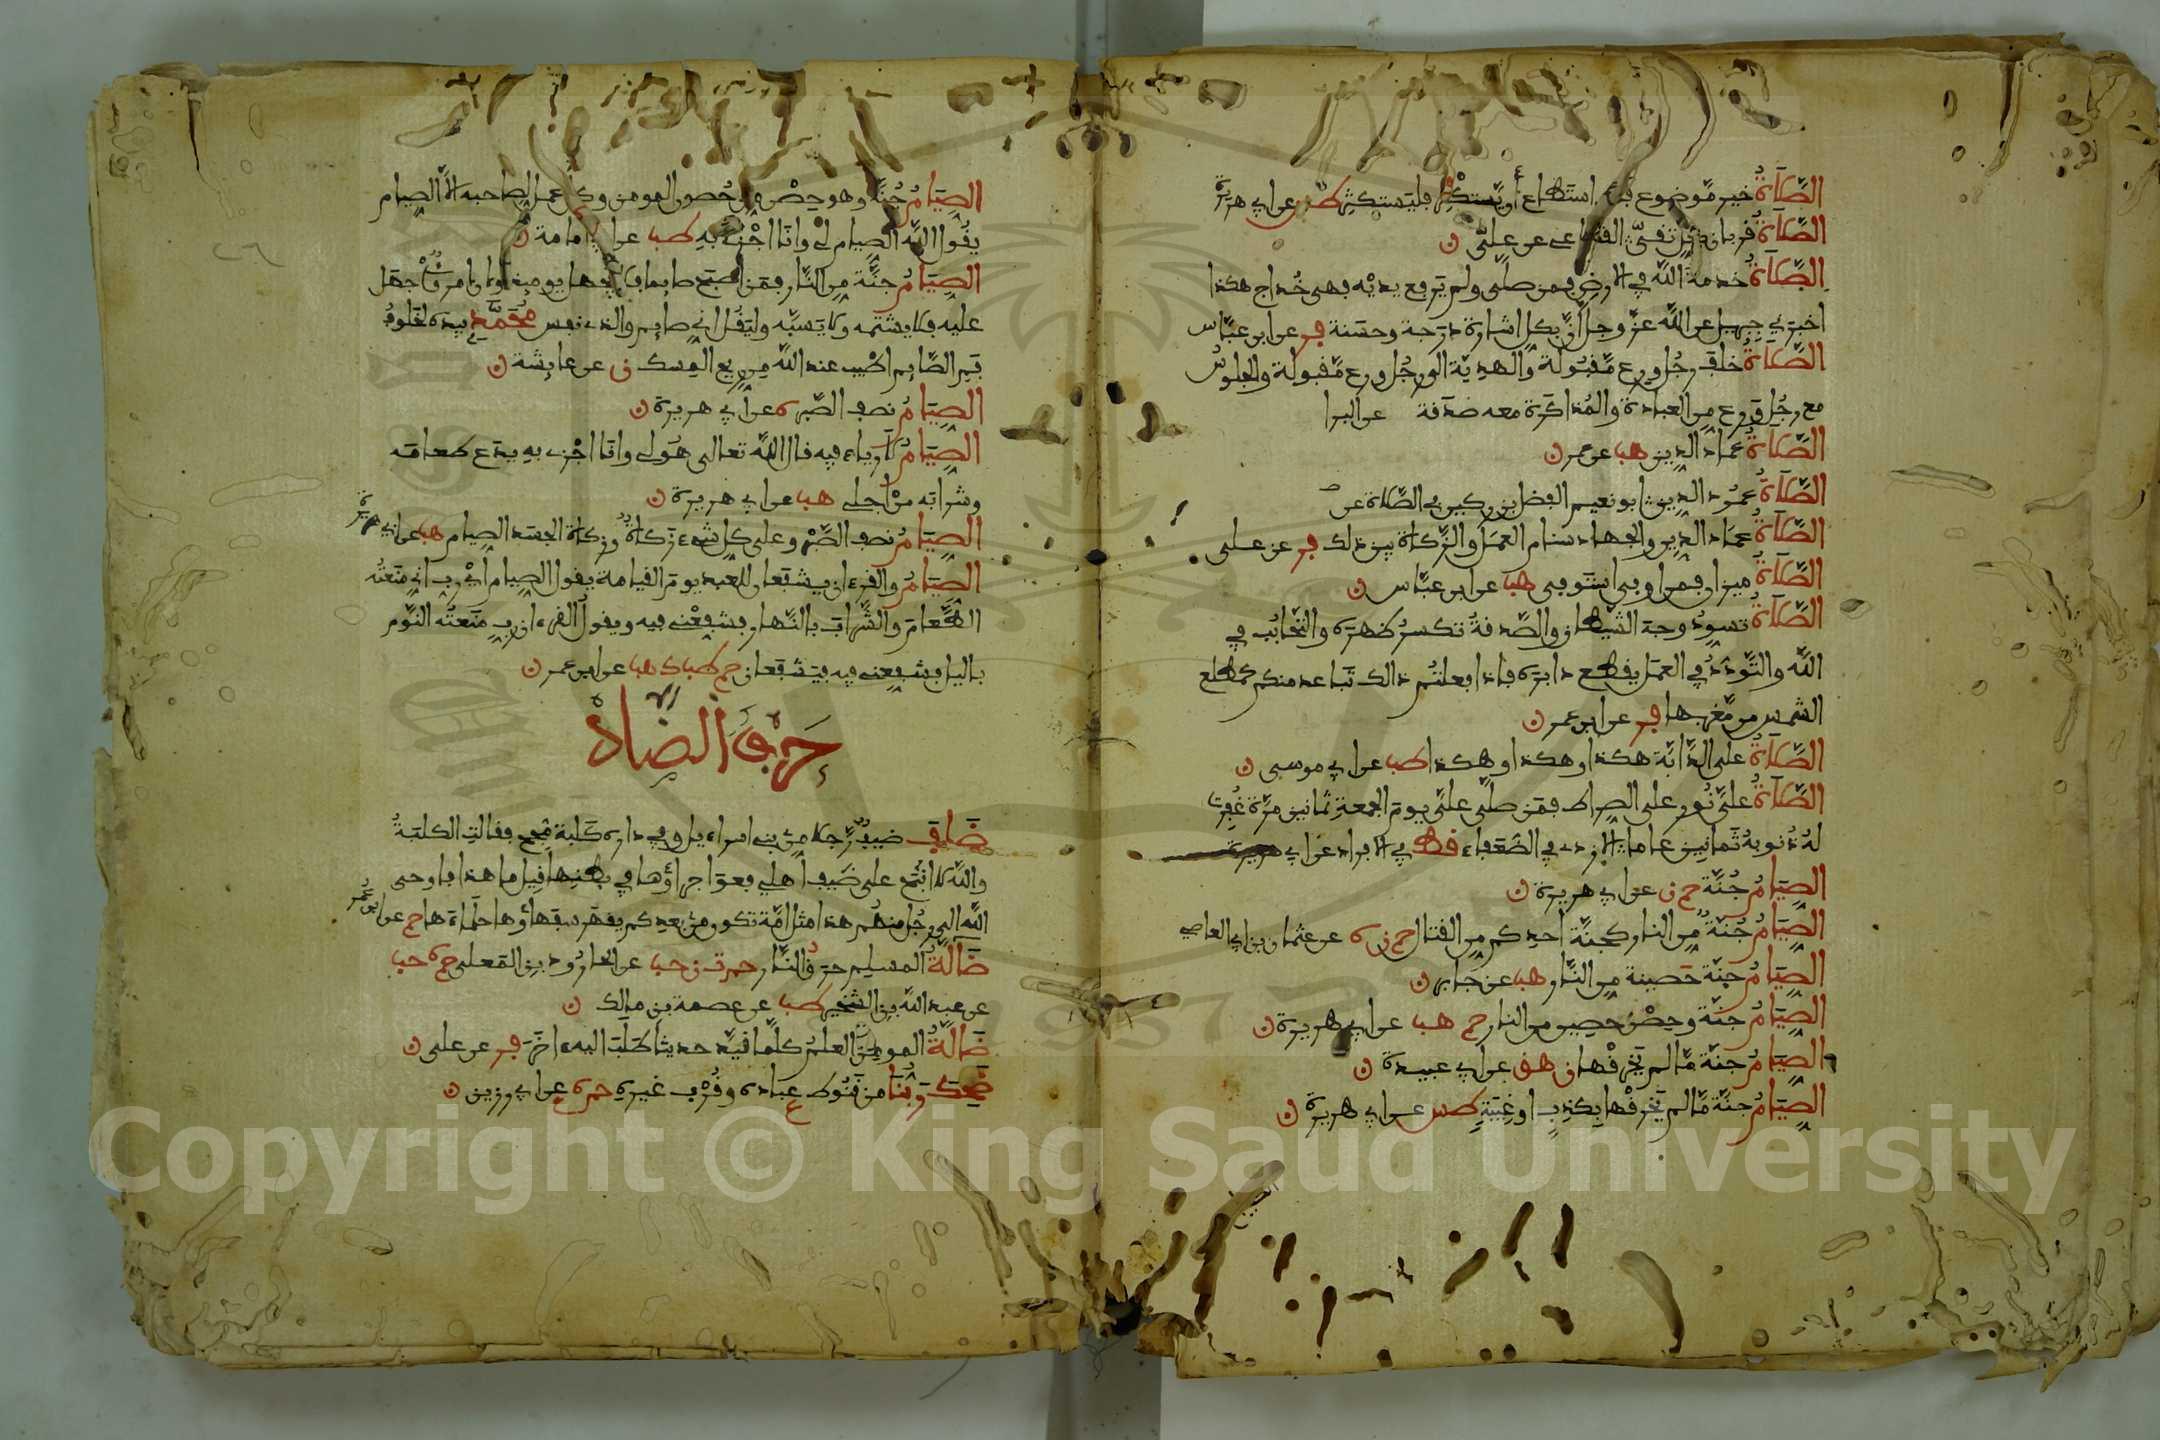 الصَّلَاةُ خير مَّوضوع فمن استطاع أن يَّستكثر فليستكثر طس عن ابي هريرة
الصَّلَاةُ قربان كل تقيّ القضاعي عن عليّ ن
الصَّلَاةُ خدمة الله في الارض فمن صلى ولم يَرفع يديه فهي خداج هكذا
اخبرني جبريل عن الله عزّ وجل انّ بكل اشارة درجة وحسنة فر عن ابن عبّاس
الصَّلَاةُ خلف رجل ورع مَّقبولة والهدية الى رجل ورع مَّقبولة والجلوس
مع رجل ورع من العبادة والمذاكرة معه صدقة عن البرا
الصَّلَاةُ عماد الدين هب عن عمر ن
الصَّلَاةُ عمود الدين ابو نعيم الفضل بن دكين في الصَّلاة عن
الصَّلَاةُ عماد الدين والجهاد سنام العمل والزّكاة بين ذلك فر عن علي
الصَّلَاةُ ميزان فمن اوفى استوفى هب عن ابن عبّاس ن
الصَّلَاةُ تسوّد وجه الشيطان والصّدقةُ تكسر ظهره والتّحابب في
الله والتّودد في العمل يقطع دابره فاذا فعلتم ذالك تباعد منكم كمطلع
الشمس من مّغربها فر عن ابن عمر ن
الصَّلَاةُ على الدّابّة هكذا وهكذا وهكذا طب عن ابي موسى ن
الصَّلَاةُ عليّ نور على الصراط فمن صلّى عليّ يوم الجمعة ثمانين مرّة غفرت
له ذنوبه ثمانين عاما الازدي في الضّعفاء قط في الافراد عن ابي هريرة
الصِّيَامُ جُنّة حم ن عن ابي هريرة ن
الصِّيَامُ جُنّة من النار كجنّة احدكم من القتال حم ن ه عن عثمان بن ابي العاصي
الصِّيَامُ جنّة حصينة من النّار هب عن جابر ن
الصِّيَامُ جنّة وحصن حصين من النار حم هب عن ابي هريرة ن
الصِّيَامُ جنة مّا لم يخرقها ن هق عن ابي عبيدة ن
الصِّيَامُ جنّة مّا لم يخرقها بكذب او غيبة طس عن ابي هريرة ن
الصِّيَامُ جُنّة وهو حصن من حصون المومن وكل عمل لصاحبه الاّ الصيام
يقول الله الصيام لي وانا اجزي به طب عن ابي امامة ن
الصِّيَامُ جنّة من النّار فمن اصبح صايما فلا يجهل يوميذ وان امرؤ جهل
عليه فلا يشتمه ولا يسبّه وليقل اني صايم والذي نفس مُحَمَّدٍ بيده لخلوف
فم الصّايم اطيب عند الله من ريح المسك ن عن عايشة ن
الصِّيَامُ نصف الصّبر ه عن ابي هريرة ن
الصِّيَامُ لا رياء فيه قال الله تعالى هو لي وانا اجزي به يدع طعامه
وشرابه من اجلي هب عن ابي هريرة ن
الصِّيَامُ نصف الصّبر وعلى كل شيء زكاة وزكاة الجسد الصيام هب عن ابي هريرة
الصِّيَامُ والقرءان يشفعان للعبد يوم القيامة يقول الصيام اي رب اني منعته
الطّعام والشّراب بالنّهار فشفعني فيه ويقول القرءان رب منعته النّوم
باليل فشفعني فيه فيشفعان حم طب ك هب عن ابن عمر ن
حَرْفُ الضاد
ضَافَ ضيف رّجلا من بني اسراءيل وفي داره كلبة مجح فقالت الكلبة
والله لا انبح على ضيف اهلي فعوا جراؤها في بطنها قيل ما هذا فاوحى
الله الى رجل منهم هذا مثل امّة تكون من بعدكم يقهر سفهاؤها حلماءها حم عن ابن عمر
ضَالَّةُ المسلم حرق النّار حم ت ن حب عن الجارود بن المعلى حم ه حب
عن عبد الله بن الشخير طب عن عصمة بن مالك ن
ضَالَّةُ المومن العلم كلّما قيّد حديثا طلب اليه ءاخر فر عن علي ن
ضَحِكَ رَبُّنَا من قنوط عباده وقرب غيره حم ه عن ابي رزين ن
Copyright © King Saud University